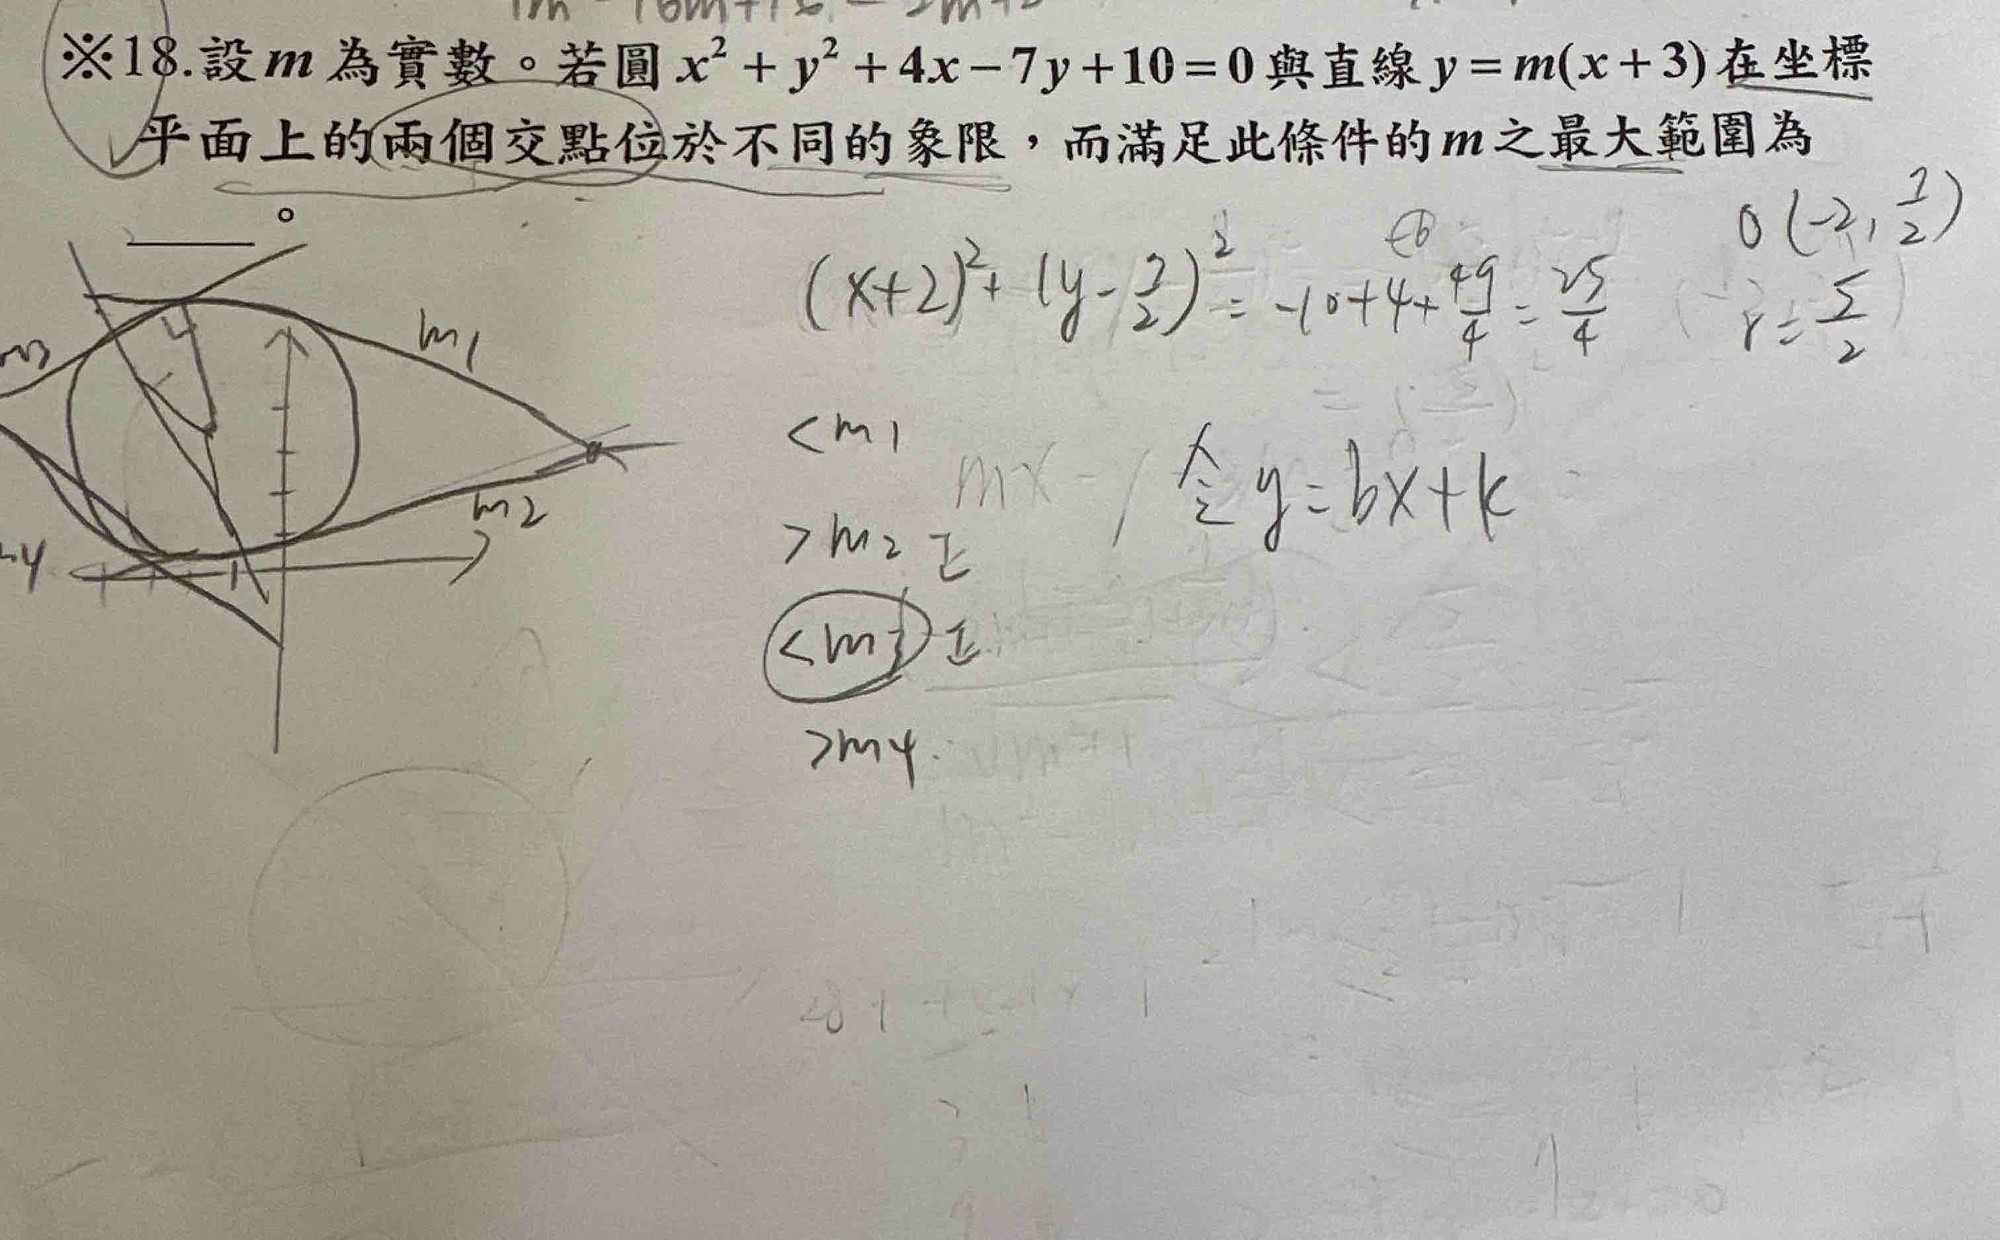 ※18.設m為實數。若圓x²+y²+4x-7y+10=0與直線y=m(x+3)在坐標
平面上的兩個交點位於不同的象限，而滿足此條件的m之最大範圍為
____。
O(-2, 7/2)
(x+2)²+(y-7/2)²=-10+4+49/4=25/4
-6
r=5/2
m1
m2
m3
<m1
令y=bx+k
>m2 正
<m3 正
>m4